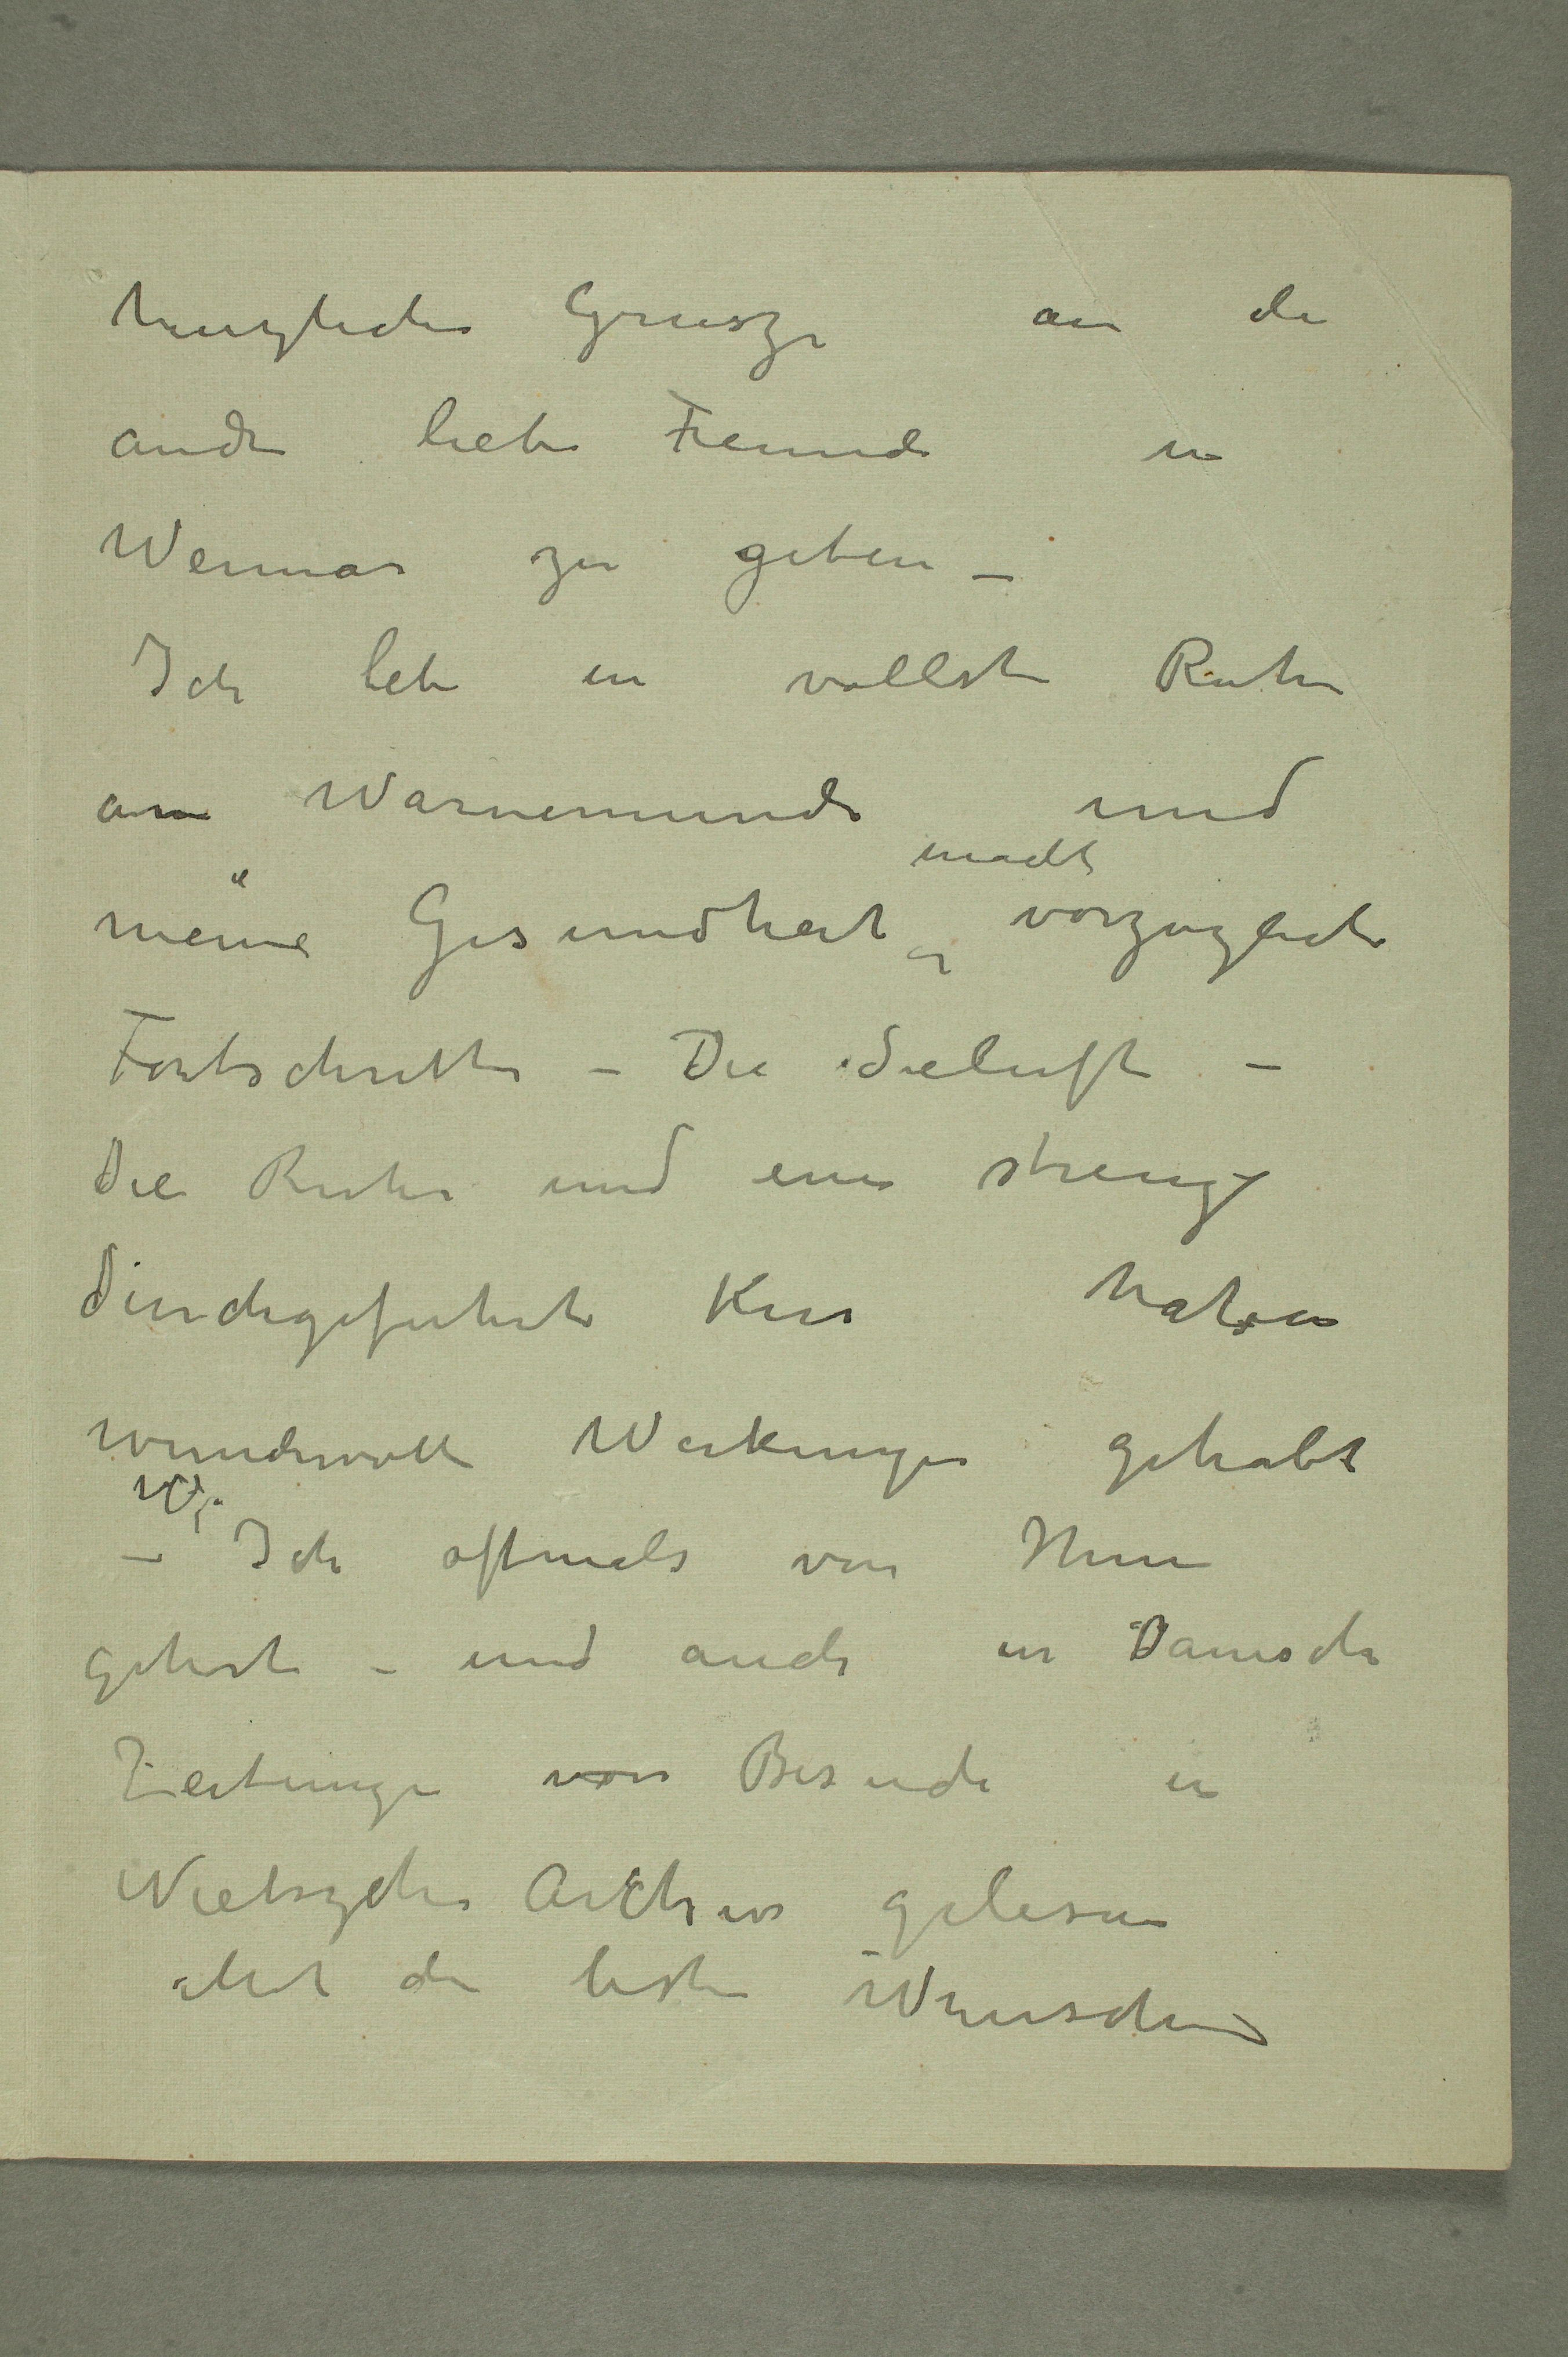 herzliche Grusze an die
andre liebe Freunde in
Weimar zu geben –
Ich lebe in vollste Ruhe
am Warnemunde und
macht
meine Gesundheit vorzugliche
Fortschritte – Die Seeluft –
die Ruhe und eine strenge
durchgefuhrte Kur haben
wundervolle Wirkungen gehabt
– Ich oftmals von Ihnen
gehort – und auch in Danische
Zeitungen von Besuche in
Nietzsche Archiv gelesen
Mit den besten Wunschen